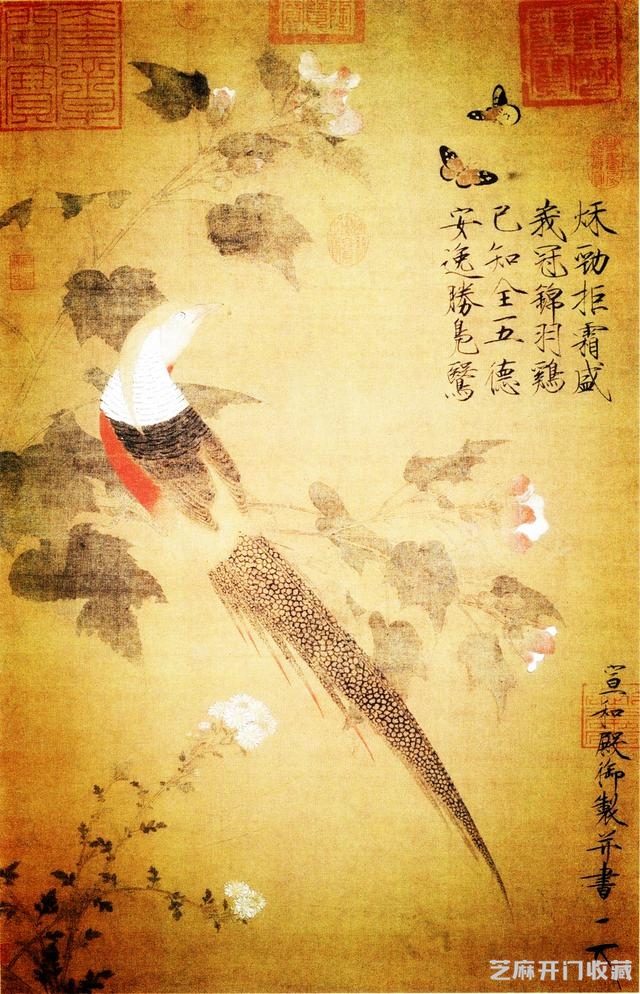 秋勁拒霜盛
峩冠錦羽鷄
已知全五德
安逸勝鳧鷖
宣和殿御製并書
芝麻开门收藏